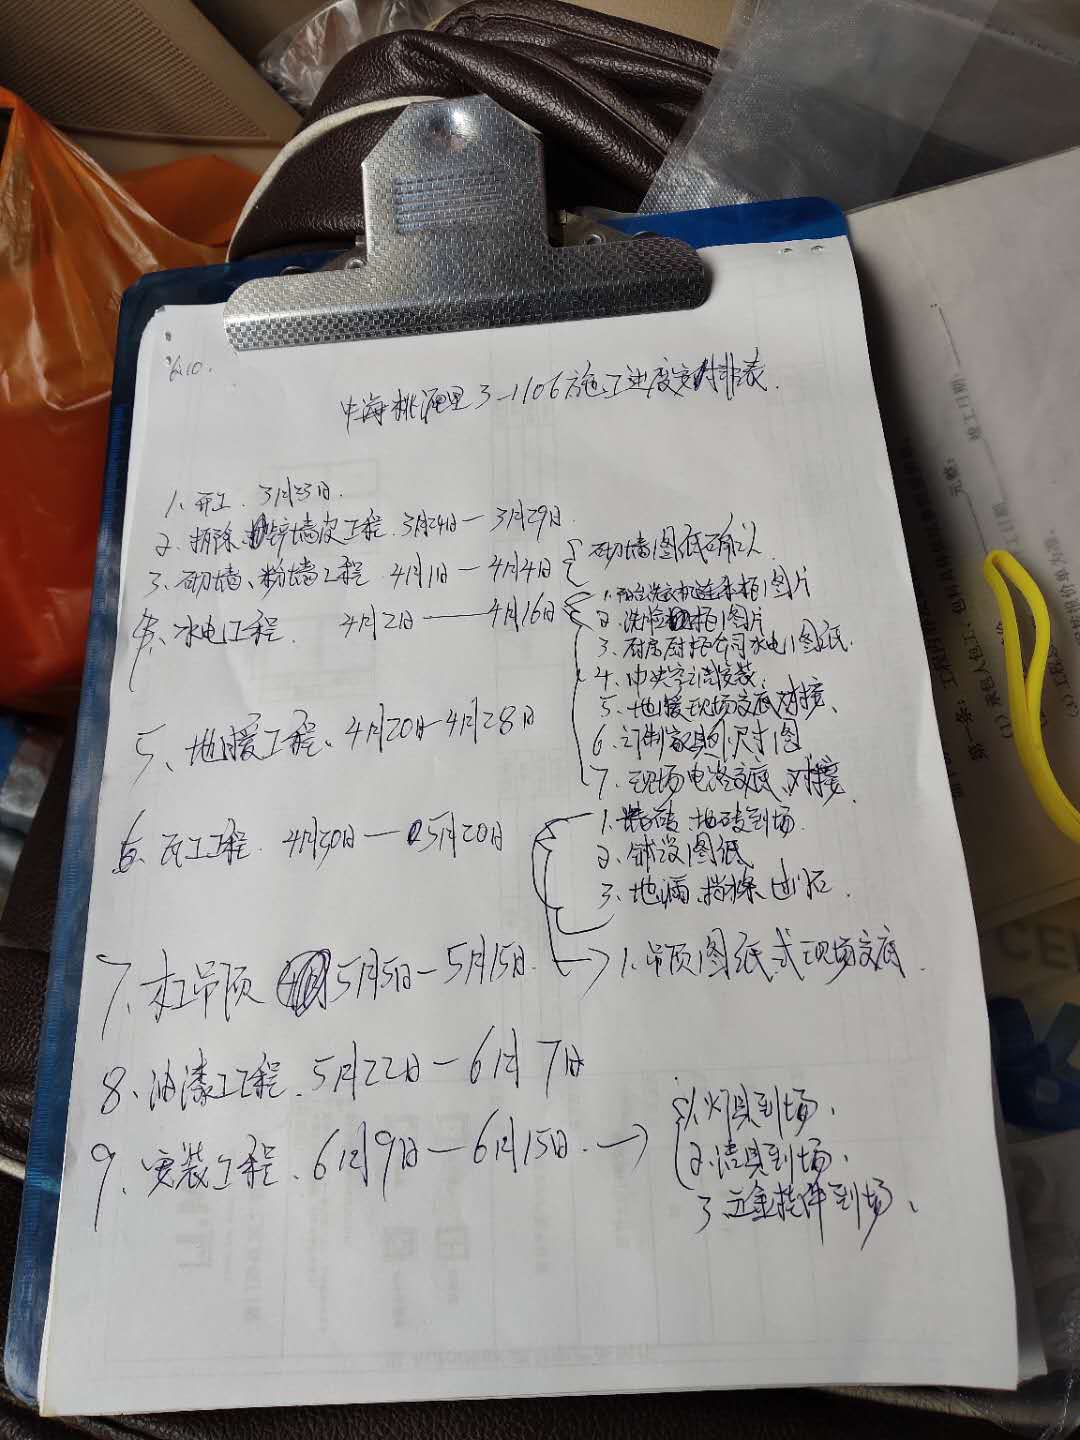 6.10.
中海桃源里3-1106施工进度安排表.
1、开工. 3月23日.
2、拆除、铲墙皮工程. 3月24日—3月29日
3、砌墙、粉墙工程 4月1日—4月4日 砌墙图纸确认
4、水电工程. 4月2日——4月16日
1、阳台洗衣机连柜图片
2、洗脸柜图片
3、厨房厨柜公司水电图纸.
4、中央空调安装.
5、地暖现场交底对接、
6、订制家具尺寸图
7、现场电路交底、对接
5、地暖工程、4月20日-4月28日
6、瓦工工程. 4月30日—5月20日
1、瓷砖、地砖到场.
2、铺设图纸
3、地漏、挡条、过门石.
7、木工吊顶 5月5日—5月15日. 1、吊顶图纸式现场交底.
8、油漆工程. 5月22日—6月7日
9、安装工程. 6月9日—6月15日.
1、灯具到场.
2、洁具到场.
3 五金挂件到场、
第一条: